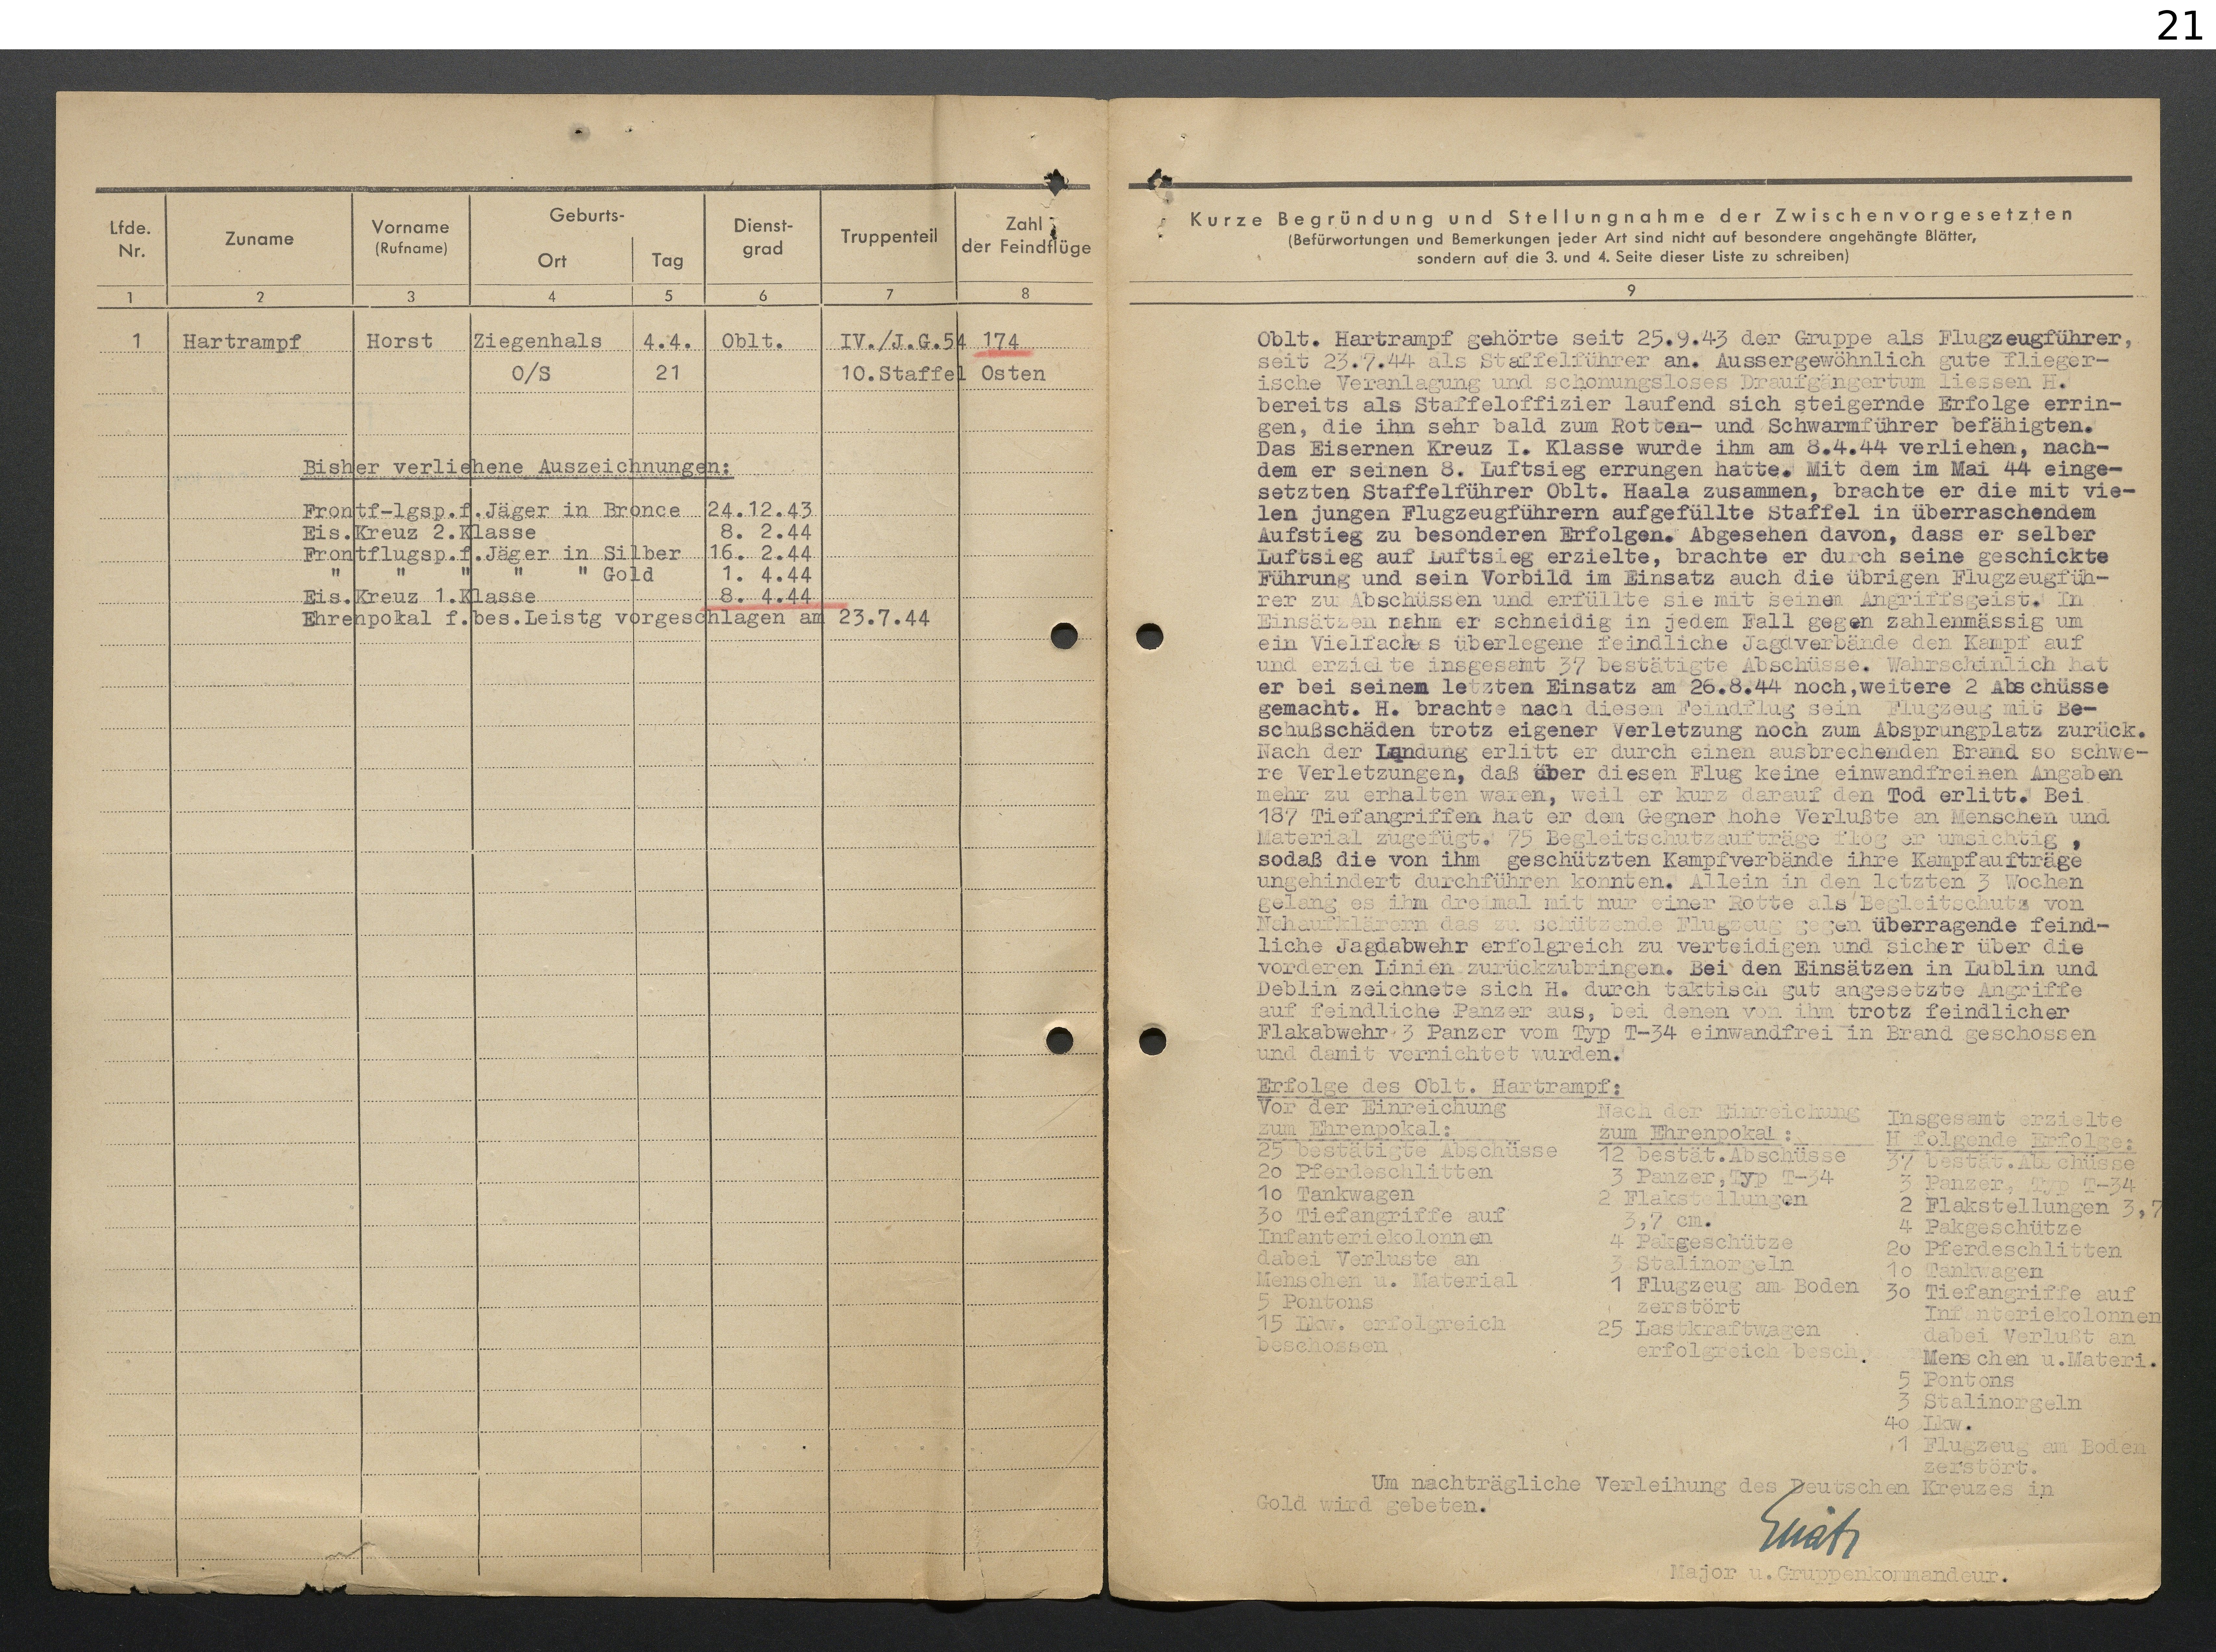 21
Lfde.
Nr.
Zuname
Vorname
(Rufname)
Geburts-
Ort
Tag
Dienst-
grad
Truppenteil
Zahl
der Feindflüge
1 2 3 4 5 6 7 8
1 Hartrampf Horst Ziegenhals 4.4. Oblt. IV./J.G.54 174
O/S 21 10.Staffel Osten
Bisher verliehene Auszeichnungen:
Frontf-lgsp.f.Jäger in Bronce 24.12.43
Eis.Kreuz 2.Klasse 8. 2.44
Frontflugsp.f.Jäger in Silber 16. 2.44
" " " " " Gold 1. 4.44
Eis.Kreuz 1.Klasse 8. 4.44
Ehrenpokal f.bes.Leistg vorgeschlagen am 23.7.44
Kurze Begründung und Stellungnahme der Zwischenvorgesetzten
(Befürwortungen und Bemerkungen jeder Art sind nicht auf besondere angehängte Blätter,
sondern auf die 3. und 4. Seite dieser Liste zu schreiben)
9
Oblt. Hartrampf gehörte seit 25.9.43 der Gruppe als Flugzeugführer,
seit 23.7.44 als Staffelführer an. Aussergewöhnlich gute flieger-
ische Veranlagung und schonungsloses Draufgängertum liessen H.
bereits als Staffeloffizier laufend sich steigernde Erfolge errin-
gen, die ihn sehr bald zum Rotten- und Schwarmführer befähigten.
Das Eisernen Kreuz I. Klasse wurde ihm am 8.4.44 verliehen, nach-
dem er seinen 8. Luftsieg errungen hatte. Mit dem im Mai 44 einge-
setzten Staffelführer Oblt. Haala zusammen, brachte er die mit vie-
len jungen Flugzeugführern aufgefüllte Staffel in überraschendem
Aufstieg zu besonderen Erfolgen. Abgesehen davon, dass er selber
Luftsieg auf Luftsieg erzielte, brachte er durch seine geschickte
Führung und sein Vorbild im Einsatz auch die übrigen Flugzeugfüh-
rer zu Abschüssen und erfüllte sie mit seinem Angriffsgeist. In
Einsätzen nahm er schneidig in jedem Fall gegen zahlenmässig um
ein Vielfaches überlegene feindliche Jagdverbände den Kampf auf
und erzielte insgesamt 37 bestätigte Abschüsse. Wahrscheinlich hat
er bei seinem letzten Einsatz am 26.8.44 noch,weitere 2 Abschüsse
gemacht. H. brachte nach diesem Feindflug sein Flugzeug mit Be-
schußschäden trotz eigener Verletzung noch zum Absprungplatz zurück.
Nach der Landung erlitt er durch einen ausbrechenden Brand so schwe-
re Verletzungen, daß über diesen Flug keine einwandfreinen Angaben
mehr zu erhalten waren, weil er kurz darauf den Tod erlitt. Bei
187 Tiefangriffen hat er dem Gegner hohe Verlußte an Menschen und
Material zugefügt. 75 Begleitschutzaufträge flog er umsichtig ,
sodaß die von ihm geschützten Kampfverbände ihre Kampfaufträge
ungehindert durchführen konnten. Allein in den letzten 3 Wochen
gelang es ihm dreimal mit nur einer Rotte als Begleitschutz von
Nahaufklärern das zu schützende Flugzeug gegen überragende feind-
liche Jagdabwehr erfolgreich zu verteidigen und sicher über die
vorderen Linien zurückzubringen. Bei den Einsätzen in Lublin und
Deblin zeichnete sich H. durch taktisch gut angesetzte Angriffe
auf feindliche Panzer aus, bei denen von ihm trotz feindlicher
Flakabwehr 3 Panzer vom Typ T-34 einwandfrei in Brand geschossen
und damit vernichtet wurden.
Erfolge des Oblt. Hartrampf:
Vor der Einreichung
zum Ehrenpokal:
25 bestätigte Abschüsse
20 Pferdeschlitten
10 Tankwagen
30 Tiefangriffe auf
Infanteriekolonnen
dabei Verluste an
Menschen u. Material
5 Pontons
15 Lkw. erfolgreich
beschossen
Nach der Einreichung
zum Ehrenpokal :
12 bestät.Abschüsse
3 Panzer,Typ T-34
2 Flakstellungen
3,7 cm.
4 Pakgeschütze
3 Stalinorgeln
1 Flugzeug am Boden
zerstört
25 Lastkraftwagen
erfolgreich besch.
Insgesamt erzielte
H folgende Erfolge:
37 bestät.Abschüsse
3 Panzer, Typ T-34
2 Flakstellungen 3,7
4 Pakgeschütze
20 Pferdeschlitten
10 Tankwagen
30 Tiefangriffe auf
Infanteriekolonnen
dabei Verlußt an
Menschen u.Materi.
5 Pontons
3 Stalinorgeln
40 Lkw.
1 Flugzeug am Boden
zerstört.
Um nachträgliche Verleihung des Deutschen Kreuzes in
Gold wird gebeten.
Major u.Gruppenkommandeur.